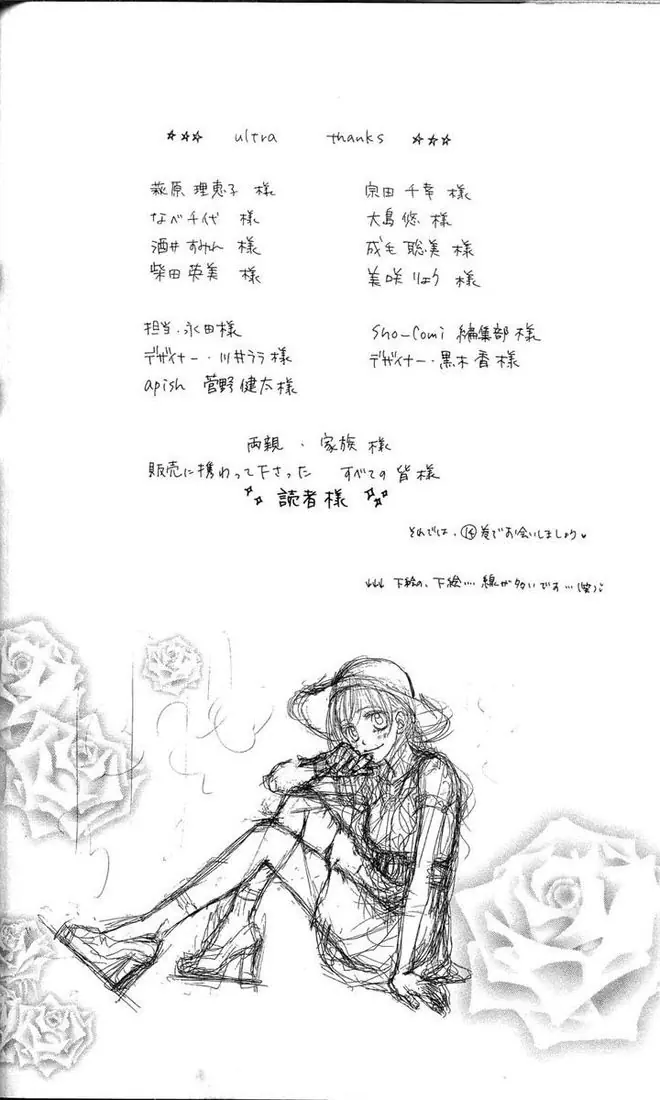 ☆☆☆ ultra thanks ☆☆☆
萩原 理恵子 様 宗田 千幸 様
なべ千代 様 大島 悠 様
酒井 すみれ 様 成毛 聡美 様
柴田 英美 様 美咲 りょう 様
担当・永田様 Sho-Comi 編集部 様
デザイナー・川井ララ様 デザイナー・黒木 香 様
apish 菅野 健太 様
両親・家族 様
販売に携わって下さった すべての 皆 様
読者様
それでは、⑭巻でお会いしましょう♥
↓↓↓ 下絵の、下絵…. 線が多いです…(笑)